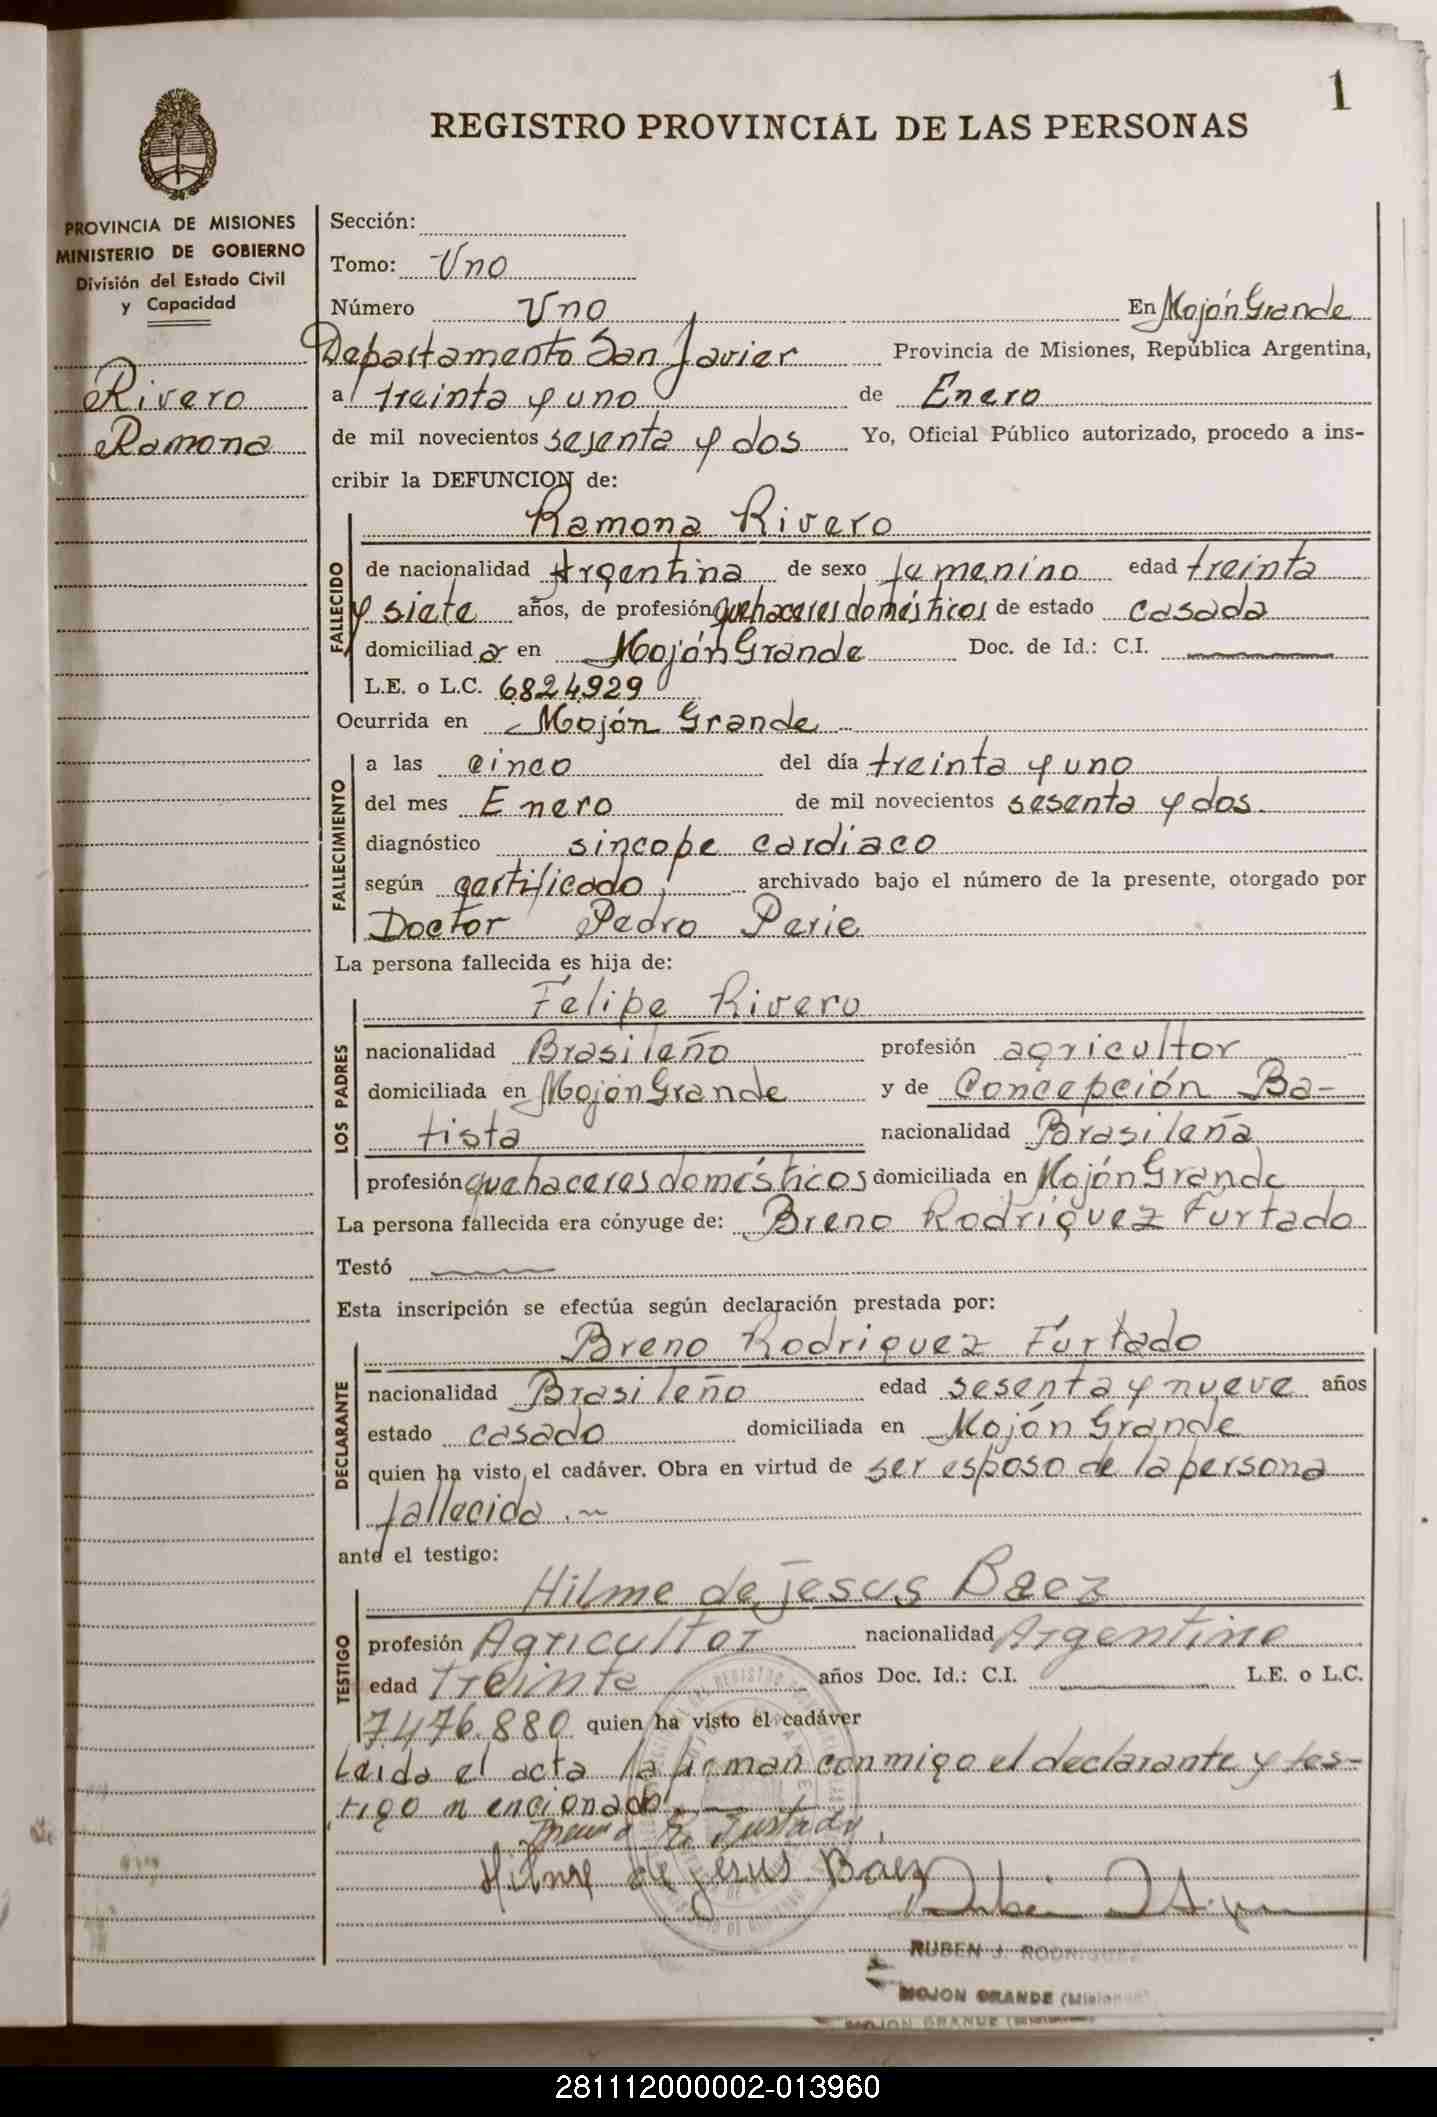 1
REGISTRO PROVINCIAL DE LAS PERSONAS
PROVINCIA DE MISIONES
MINISTERIO DE GOBIERNO
División del Estado Civil
y Capacidad
Rivero
Ramona
Sección:
Tomo: Uno
Número Uno En Mojón Grande
Departamento San Javier Provincia de Misiones, República Argentina,
a treinta y uno de Enero
de mil novecientos sesenta y dos Yo, Oficial Público autorizado, procedo a ins-
cribir la DEFUNCION de:
FALLECIDO
Ramona Rivero
de nacionalidad Argentina de sexo femenino edad treinta
y siete años, de profesión quehaceres domésticos de estado casada
domiciliada en Mojón Grande Doc. de Id.: C.I.
L.E. o L.C. 6824929
Ocurrida en Mojón Grande
FALLECIMIENTO
a las cinco del día treinta y uno
del mes Enero de mil novecientos sesenta y dos.
diagnóstico sincope cardiaco
según certificado archivado bajo el número de la presente, otorgado por
Doctor Pedro Perie
La persona fallecida es hija de:
LOS PADRES
Felipe Rivero
nacionalidad Brasileño profesión agricultor
domiciliada en Mojón Grande y de Concepción Ba-
tista nacionalidad Brasileña
profesión quehaceres domésticos domiciliada en Mojón Grande
La persona fallecida era cónyuge de: Breno Rodriguez Furtado
Testó
Esta inscripción se efectúa según declaración prestada por:
DECLARANTE
Breno Rodriguez Furtado
nacionalidad Brasileño edad sesenta y nueve años
estado casado domiciliada en Mojón Grande
quien ha visto el cadáver. Obra en virtud de ser esposo de la persona
fallecida.~
ante el testigo:
TESTIGO
Hilme de jesus Baez
profesión Agricultor nacionalidad Argentino
edad treinta años Doc. Id.: C.I. L.E. o L.C.
7.476.880 quien ha visto el cadáver
Leida el acta la firman conmigo el declarante y tes-
tigo mencionado
Breno R. Furtado
Hilme de jesus Baez
RUBEN J. RODRIGUEZ
MOJON GRANDE (Misiones)
MOJON GRANDE (Misiones)
281112000002-013960